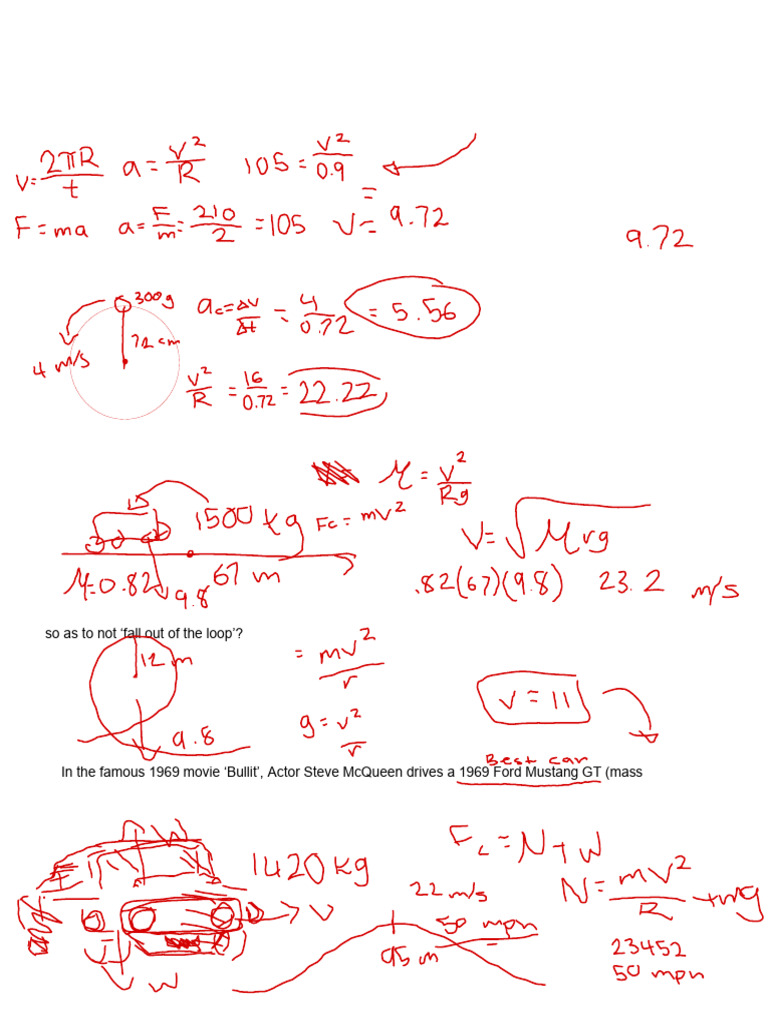 v = 2πR/t a = v²/R 105 = v²/0.9
=
F = ma a = F/m = 210/2 = 105 V = 9.72
9.72
300g
72 cm
4 m/s
ac = Δv/Δt = 4/0.72 = 5.56
v²/R = 16/0.72 = 22.22
μ = v²/Rg
1500 kg Fc = mv²
V = √μrg
μ = 0.82 9.8 67 m
.82(67)(9.8) 23.2 m/s
so as to not ‘fall out of the loop’?
12 m
= mv²/r
g = v²/r
v = 11
9.8
Best car
In the famous 1969 movie ‘Bullit’, Actor Steve McQueen drives a 1969 Ford Mustang GT (mass
W
1420 kg
Fc = N + W
N = mv²/R + mg
22 m/s
50 mph
95 m
V
W
23452
50 mph